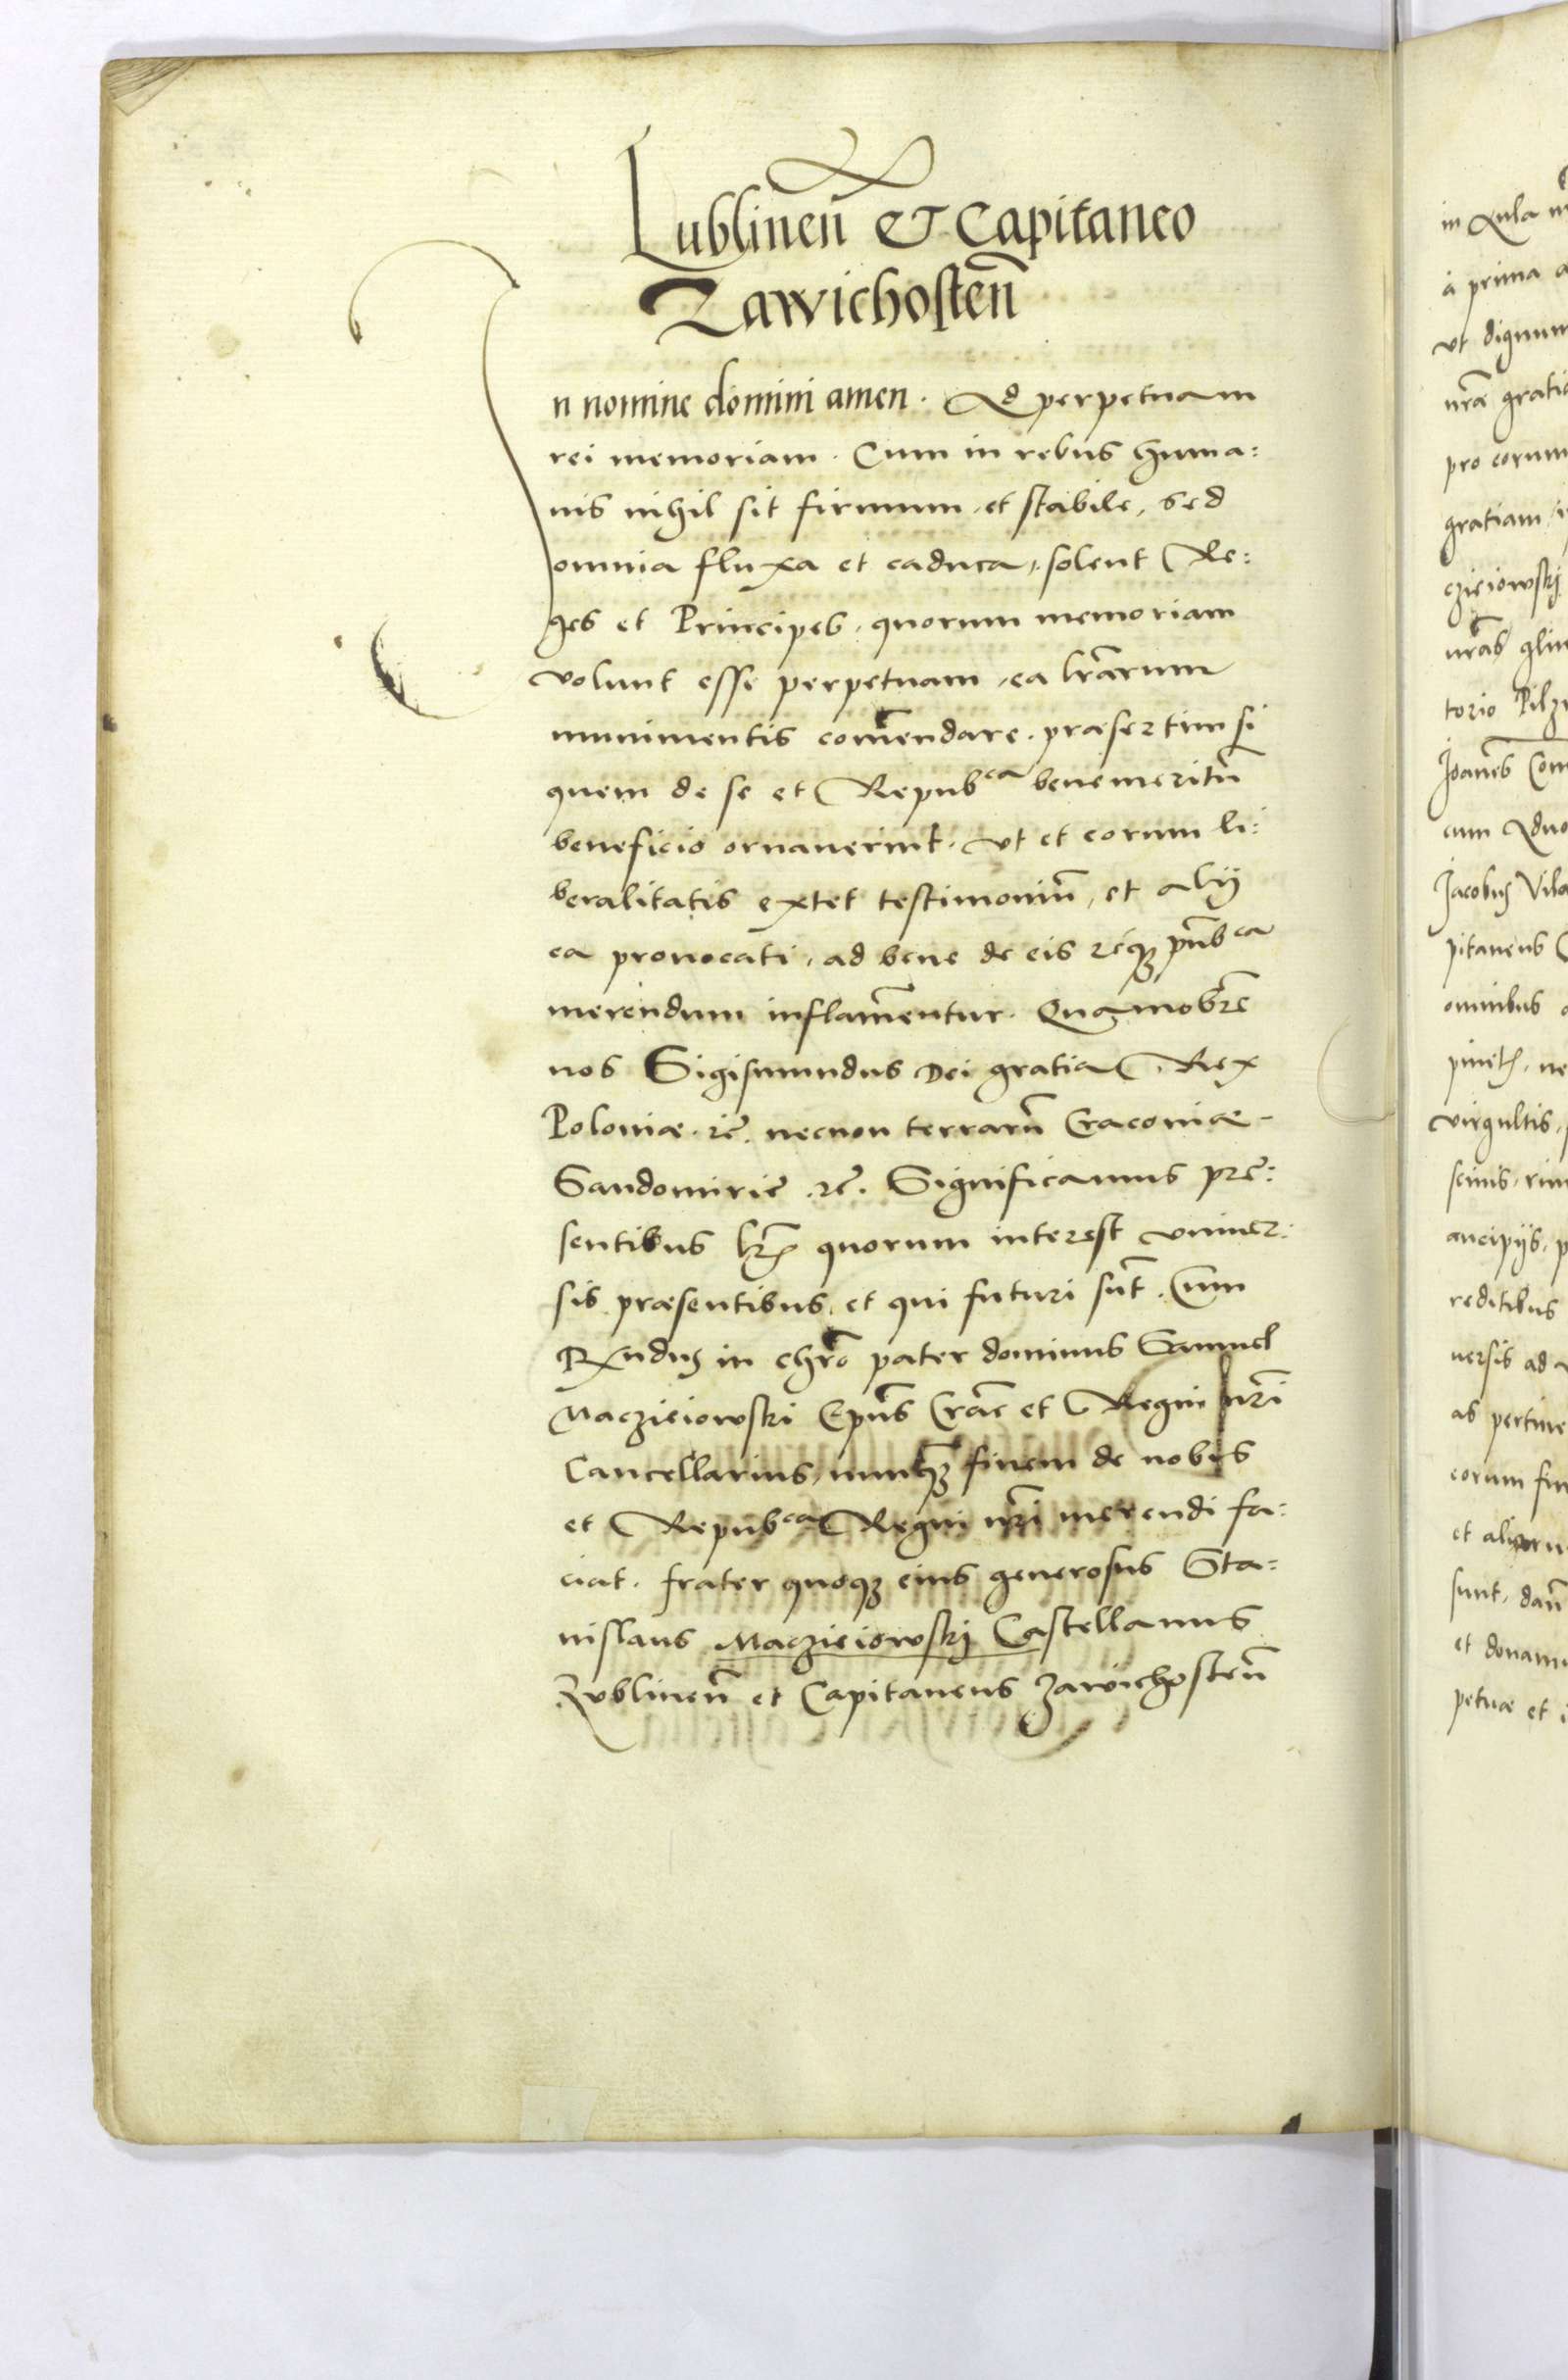 Lublinen̄ & Capitaneo
Zawichosten̄
In nomine domini amen. Ad perpetuam
rei memoriam. Cum in rebus huma:
nis nihil sit firmum, et stabile, sed
omnia fluxa et caduca, solent Re:
ges et Principes, quorum memoriam
volunt esse perpetuam, ea lr̄arum
munimentis com̄endare. præsertim si
quem de se et Repub^ca benemeritū
beneficio ornauerint, vt et eorum li:
beralitatis extet testimoniū, et alij
ea prouocati, ad bene de eis reiq₃ pub^ca
merendum inflam̄entur. Quamobrē
nos Sigismundus Dei gratia Rex
Poloniæ. rc̄. necnon terrarū Cracoviæ
Sandomirie .rc̄. Significamus præ:
sentibus lr̄is quorum interest vniuer:
sis præsentibus, et qui futuri sūt. Cum
Rx̄ndus in chr̄o pater dominus Samuel
Maczieiowski Ep̄us Crac̄ et Regni nr̄i
Cancellarius, nunq̄₃ finem de nobis
et Repub^ca Regni nr̄i merendi fa:
ciat. frater quoq₃ eius generosus Sta:
nislaus Maczieiowskj Castellanus
Lublinen̄ et Capitaneus Zawichosten̄
in Aula
à prima
vt dignum
nr̄æ gratiæ
pro eorum
gratiam
czieiowskj
nr̄as
torio Pilz
Joannes Com
cum Aduo
Jacobus Vila
pitaneus
omnibus
pinet
virgultis,
siluis,
aucipijs,
reditibus
uersis ad
as pertine
eorum
et aliorum
sunt, dan̄
et donam
petuæ et